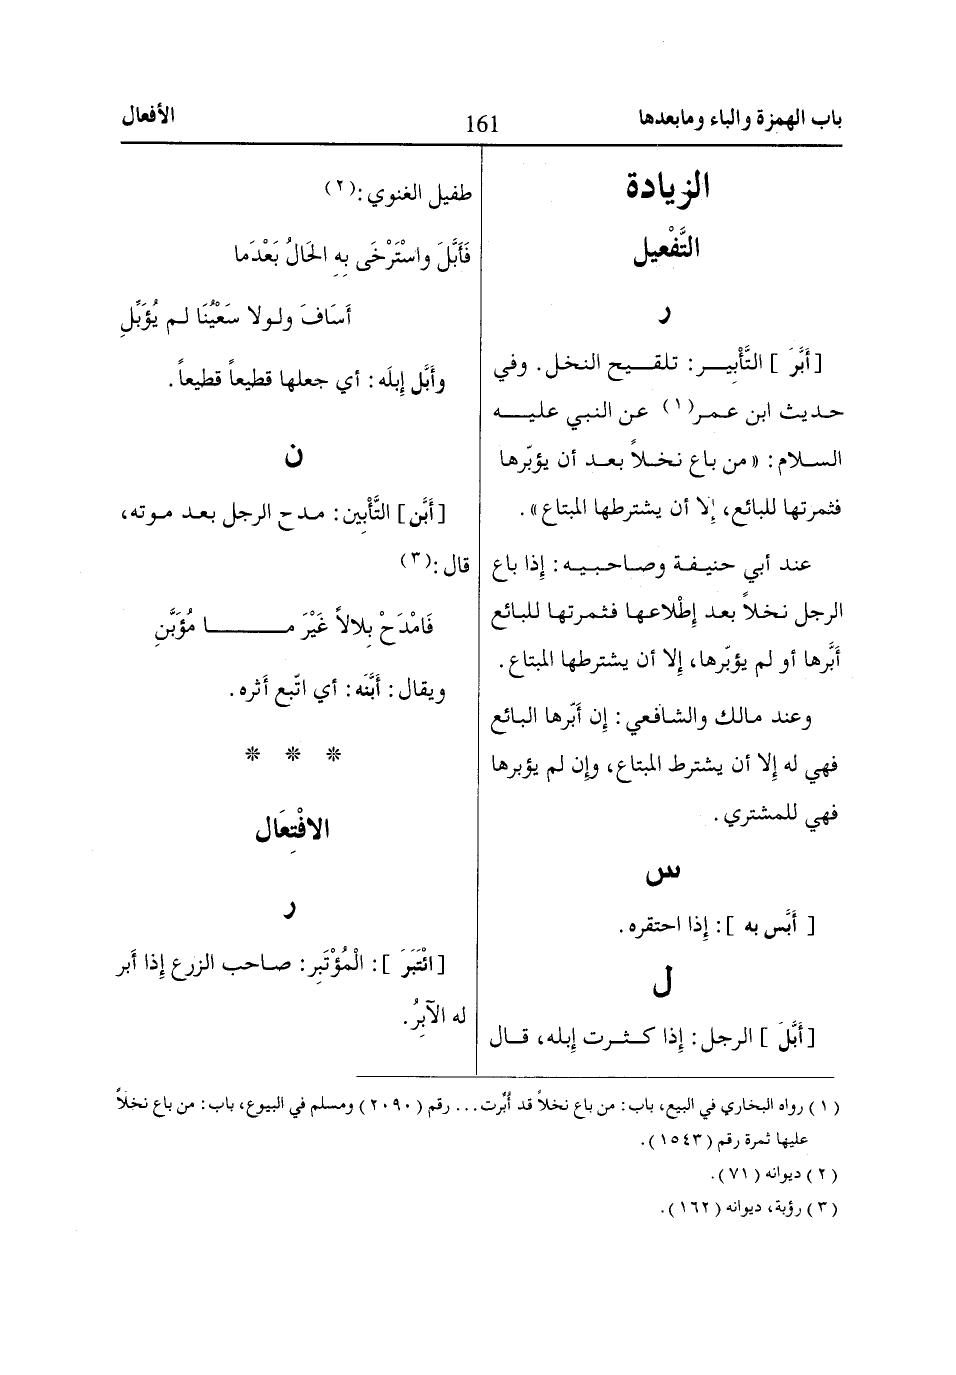 باب الهمزة والباء ومابعدها
161
الأفعال
الزيادة
التَّفْعيل
ر
[أَبَّرَ] التَّأْبِيـر: تلقـيح النخل. وفي
حديث ابن عمر(١) عن النبي عليه
السلام: «من باع نخـلاً بعد أن يؤبّرها
فثمرتها للبائع، إلا أن يشترطها المبتاع».
عند أبي حنيفة وصاحبيه: إذا باع
الرجل نخلاً بعد إطْلاعها فثمرتها للبائع
أَبَّرها أو لم يؤبّرها، إلا أن يشترطها المبتاع.
وعند مالك والشافعي: إن أبّرها البائع
فهي له إلا أن يشترط المبتاع، وإن لم يؤبرها
فهي للمشتري.
س
[أَبَّس به]: إذا احتقره.
ل
[أَبَّلَ] الرجل: إذا كثرت إبله، قال
طفيل الغنوي:(٢)
فَأَبَّلَ واسْتَرْخَى بِهِ الحَالُ بَعْدَما
أَسَافَ ولولا سَعْيُنَا لم يُؤَبَّلِ
وأَبَّل إبلَه: أي جعلها قطيعاً قطيعاً.
ن
[أَبَّن] التَّأْبِين: مدح الرجل بعد موته،
قال:(٣)
فَامْدَحْ بِلالاً غَيْرَ مـا مُؤَبَّنِ
ويقال: أَبَّنَه: أي اتّبع أثره.
* * *
الافْتِعَال
ر
[ائْتَبَرَ]: الْمُؤْتَبِر: صاحب الزرع إذا أَبر
له الآبِرُ.
(١) رواه البخاري في البيع، باب: من باع نخلاً قد أُبّرت... رقم (٢٠٩٠) ومسلم في البيوع، باب: من باع نخلاً
عليها ثمرة رقم (١٥٤٣).
(٢) ديوانه (٧١).
(٣) رؤبة، ديوانه (١٦٢).